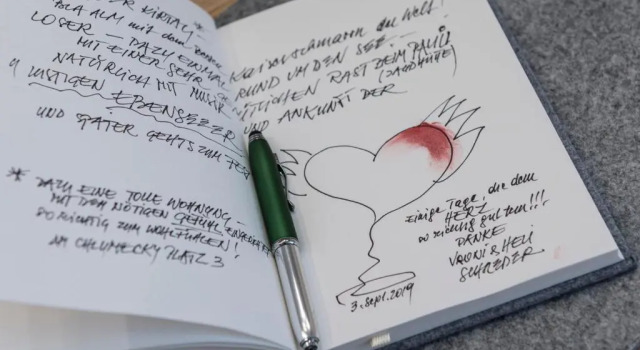 DER KIRTAG *
BLA ALM mit dem
LOSER – DAZU EINMAL
MIT EINER SEHR
NATÜRLICH MIT MUSIK
4 LUSTIGEN EBENSEEER
UND SPÄTER GEHTS ZUM FEST
* DAZU EINE TOLLE WOHNUNG –
MIT DEM NÖTIGEN GEFÜHL EINGERICHTET
SO RICHTIG ZUM WOHLFÜHLEN!
AM CHLUMECKY PLATZ 3
Kaiserschmarrn der Welt!
RUND UM DEN SEE –
RAST BEIM PAULI
(JAGDHÜTTE)
UND ANKUNFT DER
Einige Tage, die dem
HERZ
so richtig gut tun!!!
DANKE
VRONI & HELI
SCHREDER
3. Sept. 2019